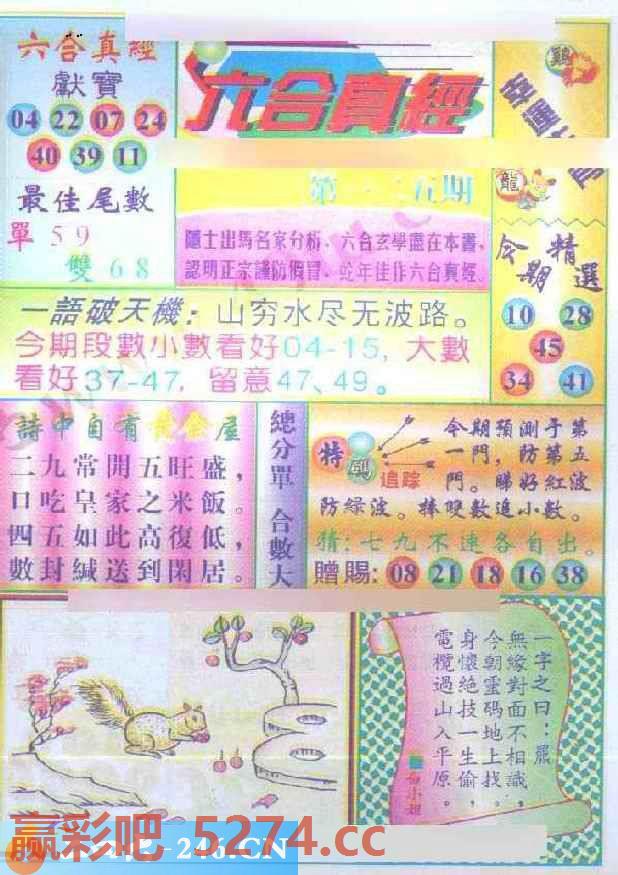 六合真經
獻寶
04 22 07 24
40 39 11
最佳尾數
單 5 9
雙 6 8
六合真經
五期
隱士出馬名家分析、六合玄學盡在本書、
認明正宗謹防假冒、蛇年佳作六合真經
雞
龍
今期精選
10 28
45
34 41
一語破天機：山穷水尽无波路。
今期段數小數看好04-15，大數
看好37-47，留意47、49。
詩中自有黃金屋
二九常開五旺盛，
口吃皇家之米飯。
四五如此高復低，
數封緘送到閑居。
總分單 合數大
特碼追踪
今期預測于第
一門，防第五
門。睇好紅波
防綠波。捧雙數追小數。
猜：七九不連各自出。
贈賜：08 21 18 16 38
一字之曰：羆
無緣對面不相識，
今朝靈碼地上找。
身懷絕技一生偷，
電欖過山入平原。
赢彩吧 5274.cc
246.CN